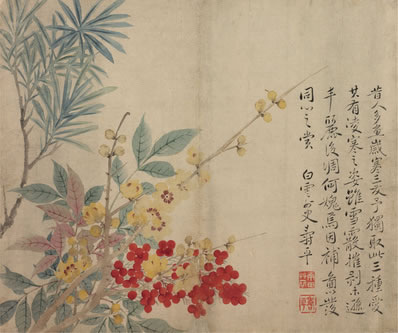 昔人多畫歲寒三友予獨取此三種愛
其有凌寒之姿雖雪霰摧剥未遜
丰麗後凋何媿焉因補圖發
同心之賞 白雲外史壽平